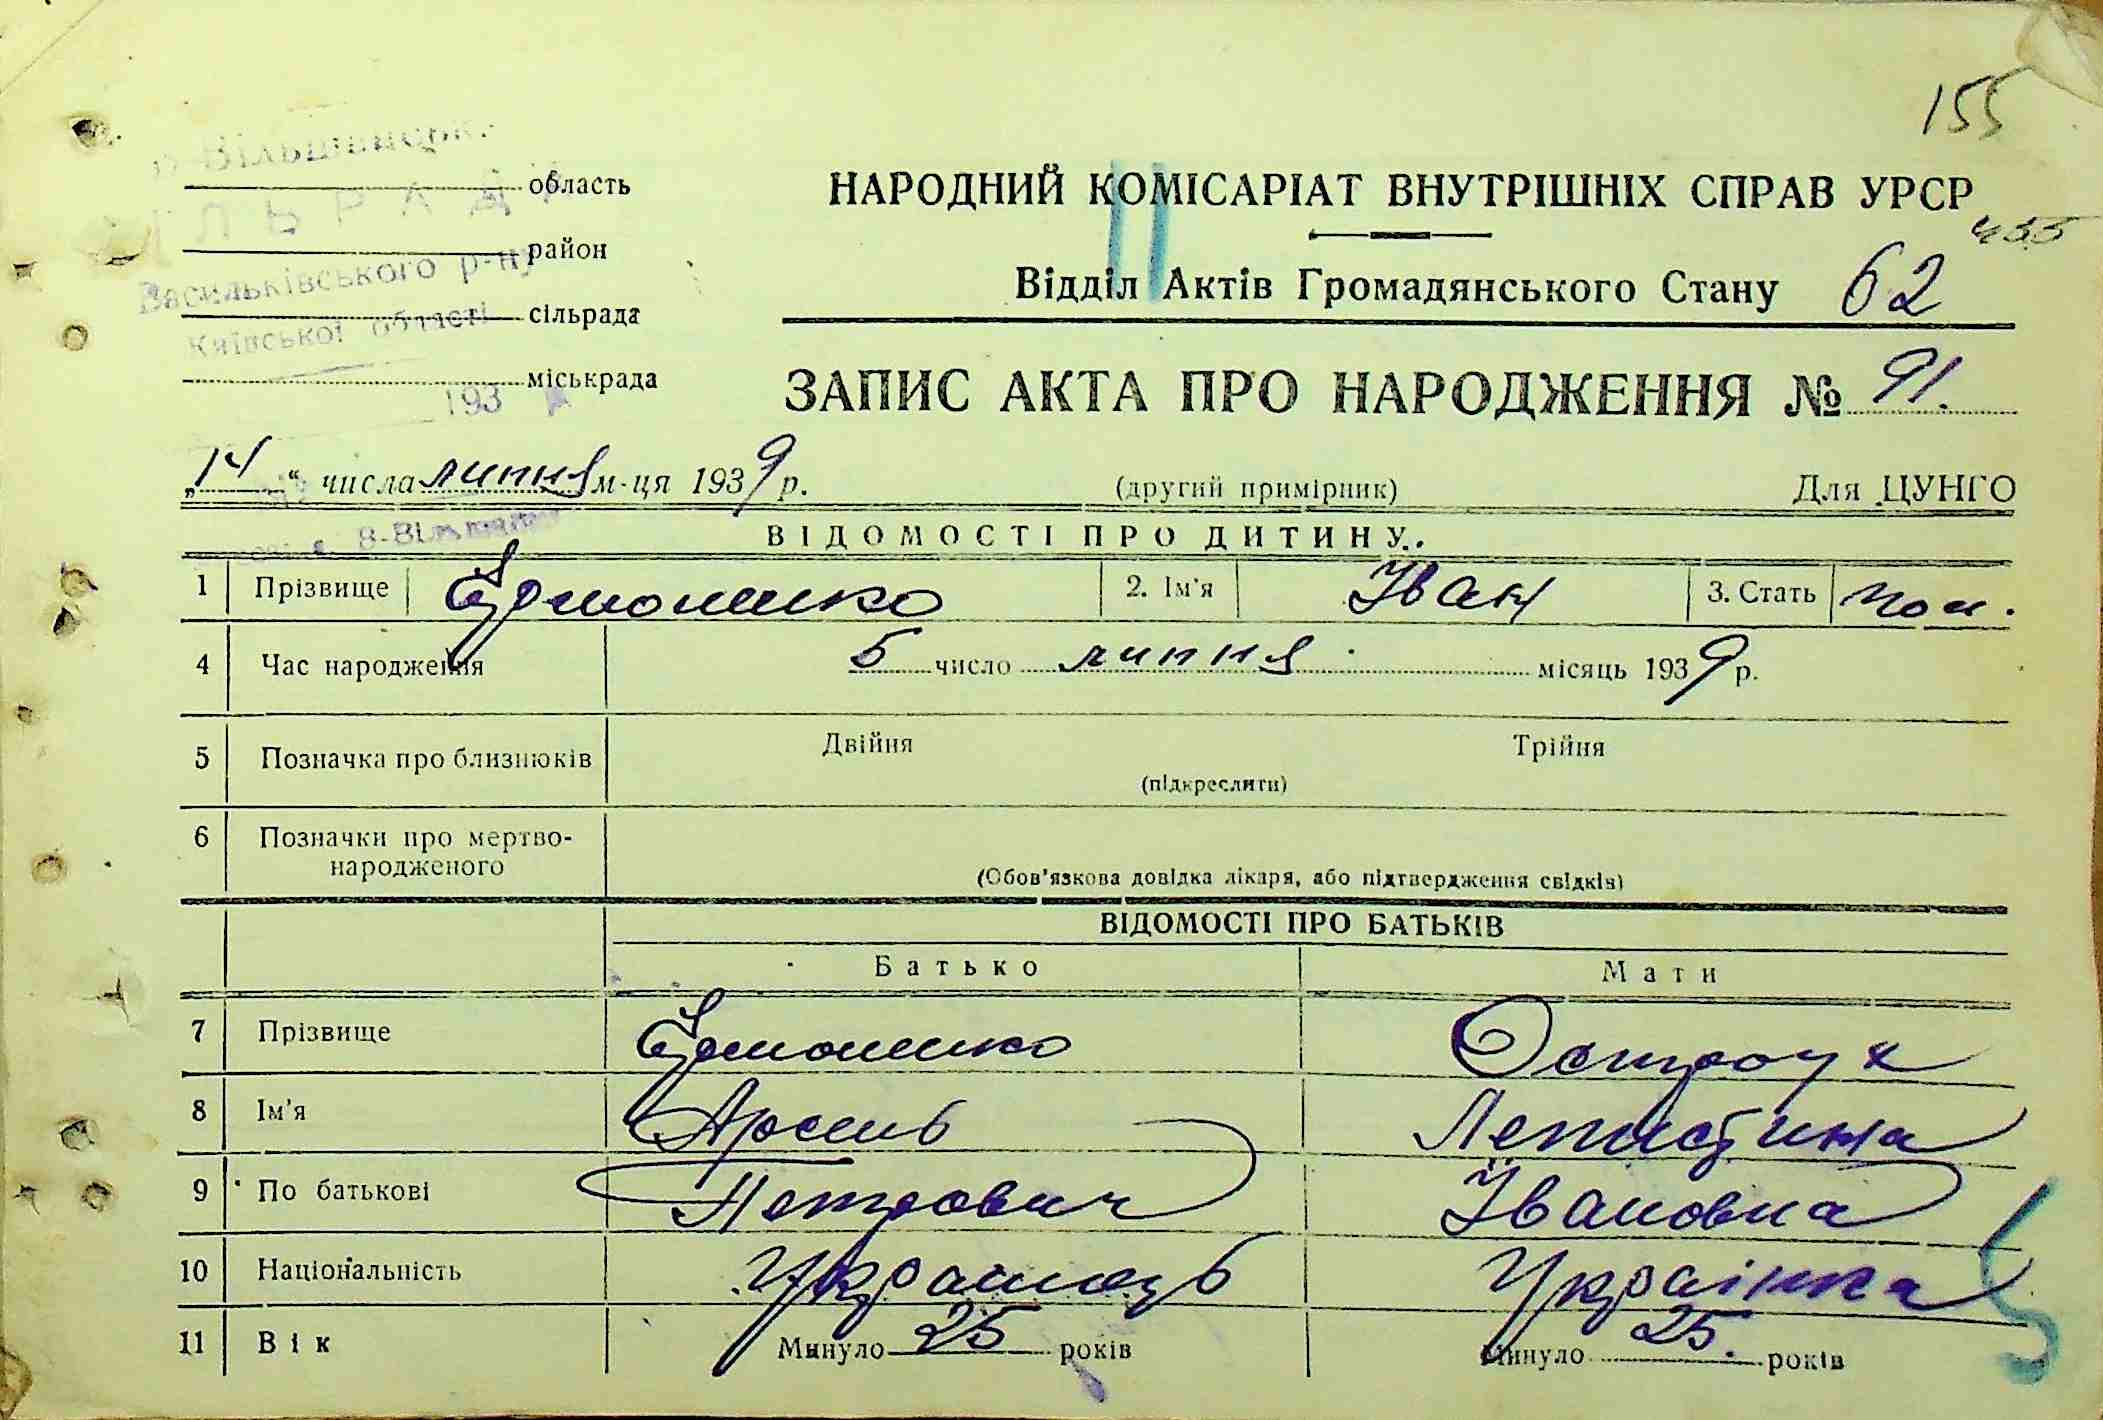 155
область
НАРОДНИЙ КОМІСАРІАТ ВНУТРІШНІХ СПРАВ УРСР
район
Васильківського р-ну
Відділ Актів Громадянського Стану 62
сільрада
Київської області
міськрада
ЗАПИС АКТА ПРО НАРОДЖЕННЯ № 91.
193
„14“ числа липня м-ця 1939 р. (другий примірник) Для ЦУНГО
ВІДОМОСТІ ПРО ДИТИНУ
1 Прізвище 2. Ім'я Іван 3. Стать чол.
4 Час народження 5 число липня місяць 1939 р.
5 Позначка про близнюків Двійня Трійня
(підкреслити)
6 Позначки про мертво-
народженого
(Обов'язкова довідка лікаря, або підтвердження свідків)
ВІДОМОСТІ ПРО БАТЬКІВ
Батько Мати
7 Прізвище Остроух
8 Ім'я Арсень Лепистина
9 По батькові Петрович Івановна
10 Національність Українець Українка
11 Вік Минуло 25 років Минуло 25. років